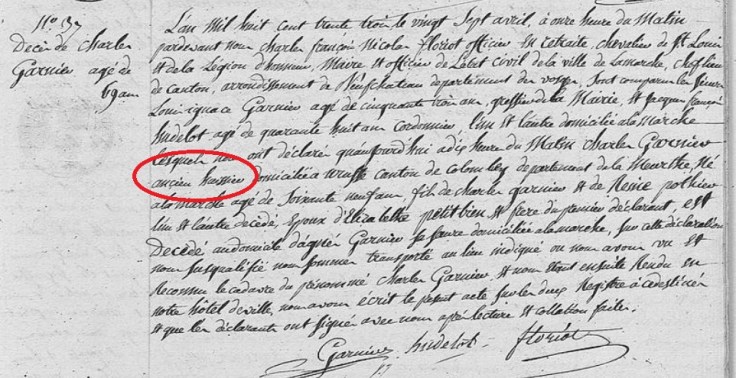 N.° 37
Decès de Charles
Garnier agé de
69 ans
L'an mil huit cent trente trois le vingt sept avril, à onze heure du Matin
pardevant nous Charles françois Nicolas floriot officier en retraite, chevalier de St Louis
et de la Légion d'honneur, Maire et officier de L'état civil de la ville de Lamarche, chef lieu
de Canton, arrondissement de Neufchateau departement des vosges, sont comparus les sieurs
Louis ignace Garnier agé de cinquante trois ans, greffier de la Mairie, et Jacques françois
hudelot agé de quarante huit ans Cordonnier, l'un et l'autre domiciliés à la marche
lesquels nous ont déclaré qu'aujourd'hui à dix heure du Matin Charles Garnier
ancien huissier domicilié à canton de Colombey departement de la Meurthe, Né
à la marche agé de soixante neuf ans, fils de Charles garnier et de Reine pothier
l'un et l'autre décédés, Epoux d'Elizabethe petitbien et frere du premier déclarant, est
Decédé au domicile d'agnès Garnier sa soeur domiciliée à la marche, sur cette déclaration
nous susqualifié nous sommes transporté au lieu indiqué ou nous avons vu et
Reconnu le cadavre du prénommé Charles Garnier et nous étant ensuite Rendu en
notre hôtel de ville, nous avons écrit le présent acte sur les deux Registre à ce destinés
et que les déclarants ont signés avec nous après lecture et collation faite.
Garnier hudelot floriot